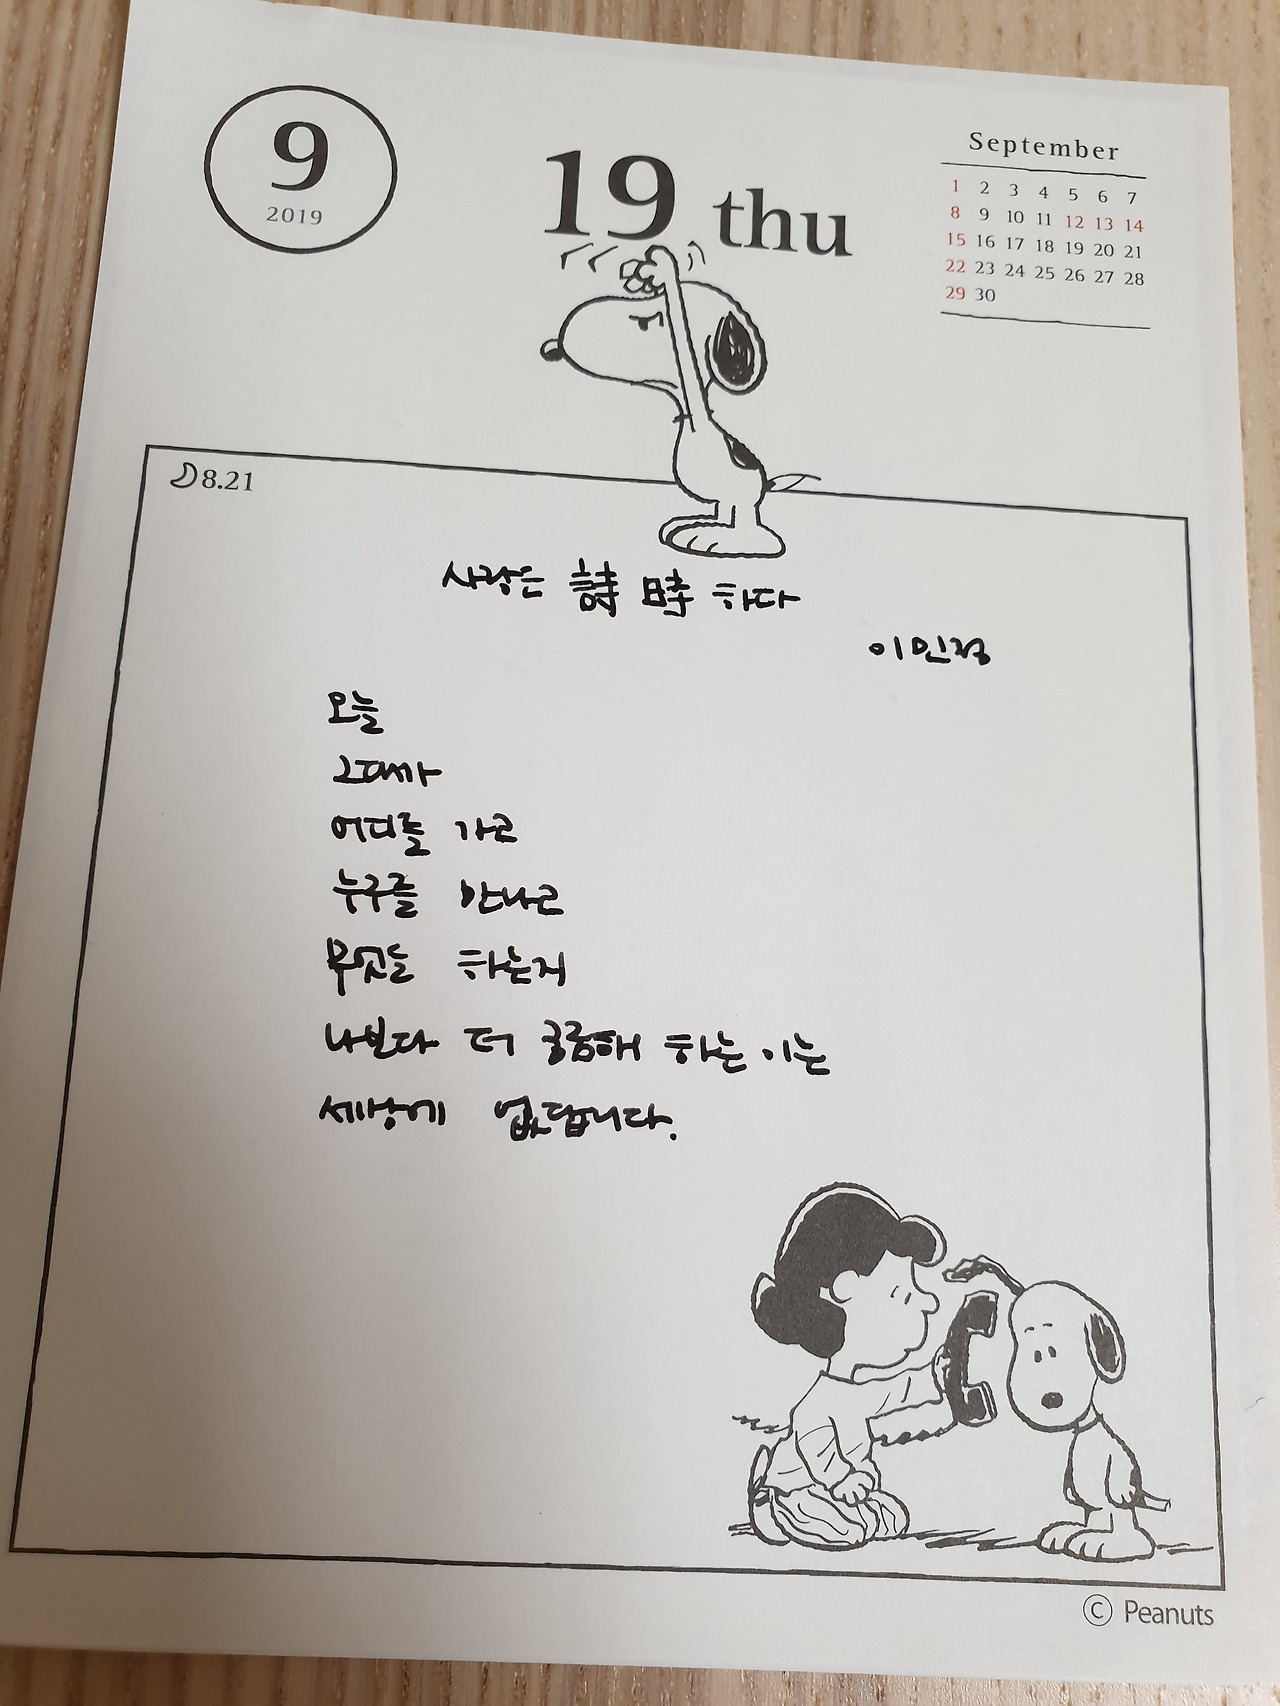 9
2019
19 thu
September
1 2 3 4 5 6 7
8 9 10 11 12 13 14
15 16 17 18 19 20 21
22 23 24 25 26 27 28
29 30
8.21
사랑은 詩 時 하다
이민정
오늘
그대가
어디를 가고
누구를 만나고
무엇을 하는지
나보다 더 궁금해 하는 이는
세상에 없답니다.
© Peanuts